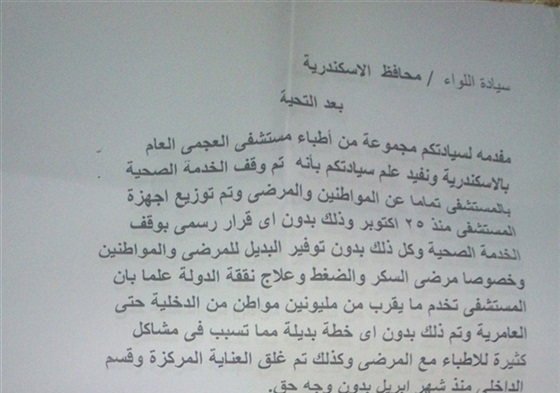 سيادة اللواء / محافظ الاسكندرية
بعد التحية
مقدمه لسيادتكم مجموعة من أطباء مستشفى العجمى العام
بالاسكندرية ونفيد علم سيادتكم بأنه تم وقف الخدمة الصحية
بالمستشفى تماما عن المواطنين والمرضى وتم توزيع اجهزة
المستشفى منذ ٢٥ اكتوبر وذلك بدون اى قرار رسمى بوقف
الخدمة الصحية وكل ذلك بدون توفير البديل للمرضى والمواطنين
وخصوصا مرضى السكر والضغط وعلاج نفقة الدولة علما بان
المستشفى تخدم ما يقرب من مليونين مواطن من الدخلية حتى
العامرية وتم ذلك بدون اى خطة بديلة مما تسبب فى مشاكل
كثيرة للاطباء مع المرضى وكذلك تم غلق العناية المركزة وقسم
الداخلى منذ شهر ابريل بدون وجه حق.